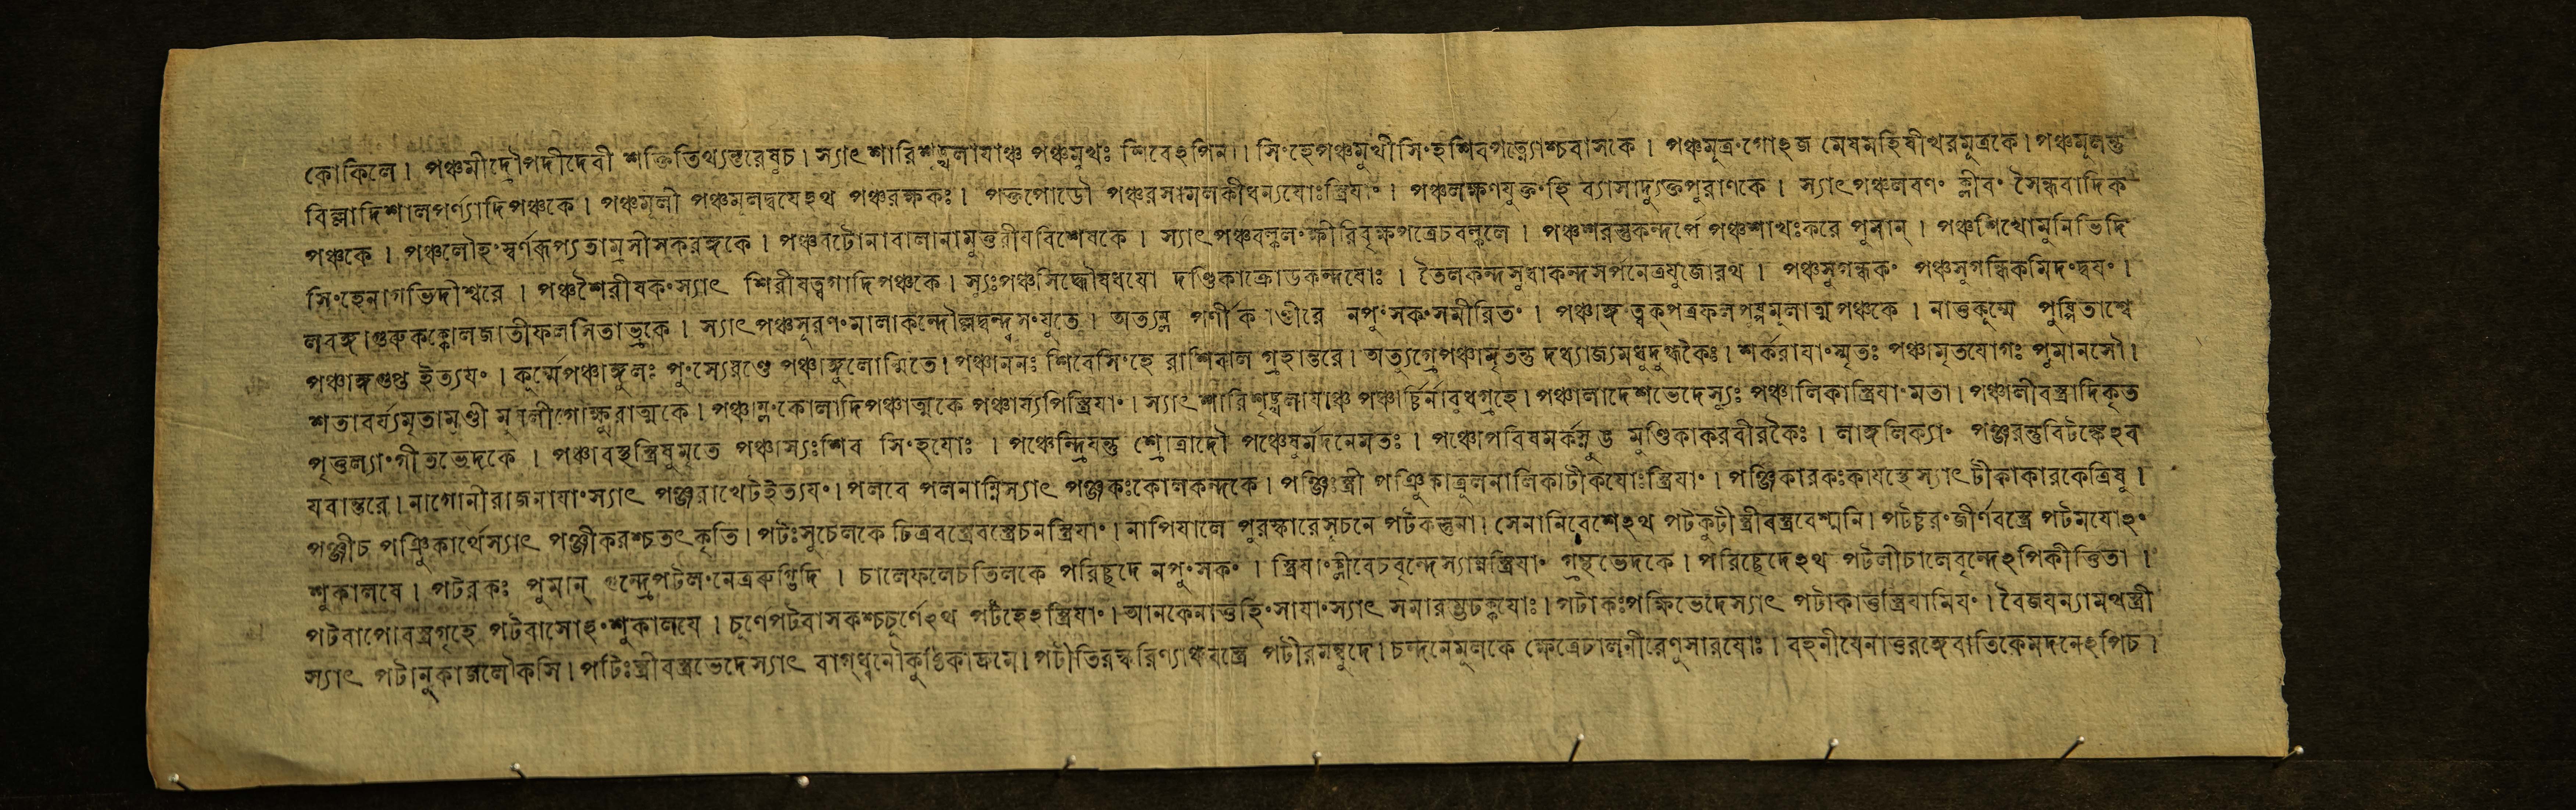 কোকিলে । পঞ্চমীদ্রৌপদীদেবী শক্তিতিথ্যন্তরেষুচ । স্যাৎ শারিশৃঙ্খলাযাঞ্চ পঞ্চমুখঃ শিবেঽপিনা । সিংহেপঞ্চমুখীসিংহশিবপত্ন্যোশ্চবাসকে । পঞ্চমূত্রংগোঽজ মেষমহিষীখরমূত্রকে । পঞ্চমূলন্তু
বিল্বাদিশালপর্ণ্যাদিপঞ্চকে । পঞ্চমূলী পঞ্চমূলদ্বযেঽথ পঞ্চরক্ষকঃ । পক্তপোডৌ পঞ্চরসামলকীধন্যযোঃস্ত্রিযাং । পঞ্চলক্ষণযুক্তংহি ব্যাসাদ্যুক্তপুরাণকে । স্যাৎপঞ্চলবণং ক্লীবং সৈন্ধবাদিক
পঞ্চকে । পঞ্চলৌহংস্বর্ণরূপ্যতাম্রসীসকরঙ্গকে । পঞ্চবটোনাবালানামুত্তরীযবিশেষকে । স্যাৎপঞ্চবল্কলংক্ষীরিবৃক্ষপত্রেচবল্কলে । পঞ্চশরস্তুকন্দর্পে পঞ্চশাখঃকরে পুমান্ । পঞ্চশিখোমুনিভিদি
সিংহেনাগভিদীশ্বরে । পঞ্চশৈরীষকংস্যাৎ শিরীষত্বগাদিপঞ্চকে । স্যুঃপঞ্চসিদ্ধৌষধযো দণ্ডিকাক্রোডকন্দযোঃ । তৈলকন্দসুধাকন্দসর্পনেত্রযুজোরথ । পঞ্চসুগন্ধকং পঞ্চসুগন্ধিকমিদংদ্বযং ।
লবঙ্গাগুরুকক্কোলজাতীফলসিতাভ্রকে । স্যাৎপঞ্চসূরণংমালাকন্দৌল্লদ্বন্দ্বসংযুতে । অত্যম্ল পর্ণীকাণ্ডীরে নপুংসকংসমীরিতং । পঞ্চাঙ্গংত্বক্পত্রফলপুষ্পমূলাত্মপঞ্চকে । নাত্তুকূর্ম্মে পুষ্পিতাশ্বে
পঞ্চাঙ্গগুপ্ত ইত্যযং । কূর্ম্মেপঞ্চাঙ্গুলঃ পুংস্যেরণ্ডে পঞ্চাঙ্গুলোন্মিতে । পঞ্চাননঃ শিবেসিংহে রাশিকাল গ্রহান্তরে । অত্যুগ্রেপঞ্চামৃতন্তু দধ্যাজ্যমধুদুগ্ধকৈঃ । শর্করাযাংস্মৃতঃ পঞ্চামৃতযোগঃ পুমানসৌ ।
শতাবর্য্যমৃতামুণ্ডী মুষলীগোক্ষুরাত্মকে । পঞ্চাম্লংকোলাদিপঞ্চাত্মকে পঞ্চাম্ল্যপিস্ত্রিযাং । স্যাৎ শারিশৃঙ্খলাযাঞ্চ পঞ্চার্চ্চির্নাবুধগ্রহে । পঞ্চালাদেশভেদেস্যুঃ পঞ্চালিকাস্ত্রিযাংমতা । পঞ্চালীবস্ত্রাদিকৃত
পুত্তল্যাংগীতভেদকে । পঞ্চাবস্থস্ত্রিষুমৃতে পঞ্চাস্যঃশিব সিংহযোঃ । পঞ্চেন্দ্রিযন্তু শ্রোত্রাদৌ পঞ্চেষুর্মদনেমতঃ । পঞ্চোপবিষমর্কস্নুগ্ভ মুণ্ডিকাকরবীরকৈঃ । লাঙ্গলিক্যাং পঞ্জরন্তুবিটঙ্কেঽব
যবান্তরে । নাগোনীরাজনাযাংস্যাৎ পঞ্জরাখেটইত্যযং । পলবে পলনাম্নিস্যাৎ পঞ্জকঃকোলকন্দকে । পঞ্জিঃস্ত্রী পঞ্জিকাতূলনালিকাটীকযোঃস্ত্রিযাং । পঞ্জিকারকঃকাযস্থেস্যাৎটীকাকারকেত্রিষু ।
পঞ্জীচ পঞ্জিকার্থেস্যাৎ পঞ্জীকরশ্চতৎকৃতি । পটঃসুচেলকে চিত্রবস্ত্রেবস্ত্রেচনস্ত্রিযাং । নাপিযালে পুরস্কারেসূচনে পটকস্তুনা । সেনানিবেশেঽথ পটকুটীস্ত্রীবস্ত্রবেশ্মনি । পটচ্চরংজীর্ণবস্ত্রে পটমযোঽং
শুকালযে । পটরকঃ পুমান্ গুন্দ্রেপটলংনেত্ররুগ্ভিদি । চালেফলেচতিলকে পরিচ্ছদে নপুংসকং । স্ত্রিযাংক্লীবেচবৃন্দেস্যান্নস্ত্রিযাং গ্রন্থভেদকে । পরিচ্ছেদেঽথ পটলীচালেবৃন্দেঽপিকীর্ত্তিতা ।
পটবাপোবস্ত্রগৃহে পটবাসোঽংশুকালযে । চূর্ণেপটবাসকশ্চচূর্ণেঽথ পটহেঽস্ত্রিযাং । আনকেনাত্তুহিংসাযাংস্যাৎ সমারম্ভঢক্কযোঃ । পটাকঃপক্ষিভেদেস্যাৎ পটাকাত্তুস্ত্রিযামিযং । বৈজযন্যামথস্ত্রী
স্যাৎ পটানুকাজলৌকসি । পটিঃস্ত্রীবস্ত্রভেদেস্যাৎ বাগ্ধ্বনৌকুণ্ঠিকাদ্রুমে । পটীতিরস্করিণ্যাঞ্চবস্ত্রে পটীরমম্বুদে । চন্দনেমূলকে ক্ষেত্রেচালনীরেণুসারযোঃ । বহনীযেনাত্তুরঙ্গেবাতিকেমদনেঽপিচ ।